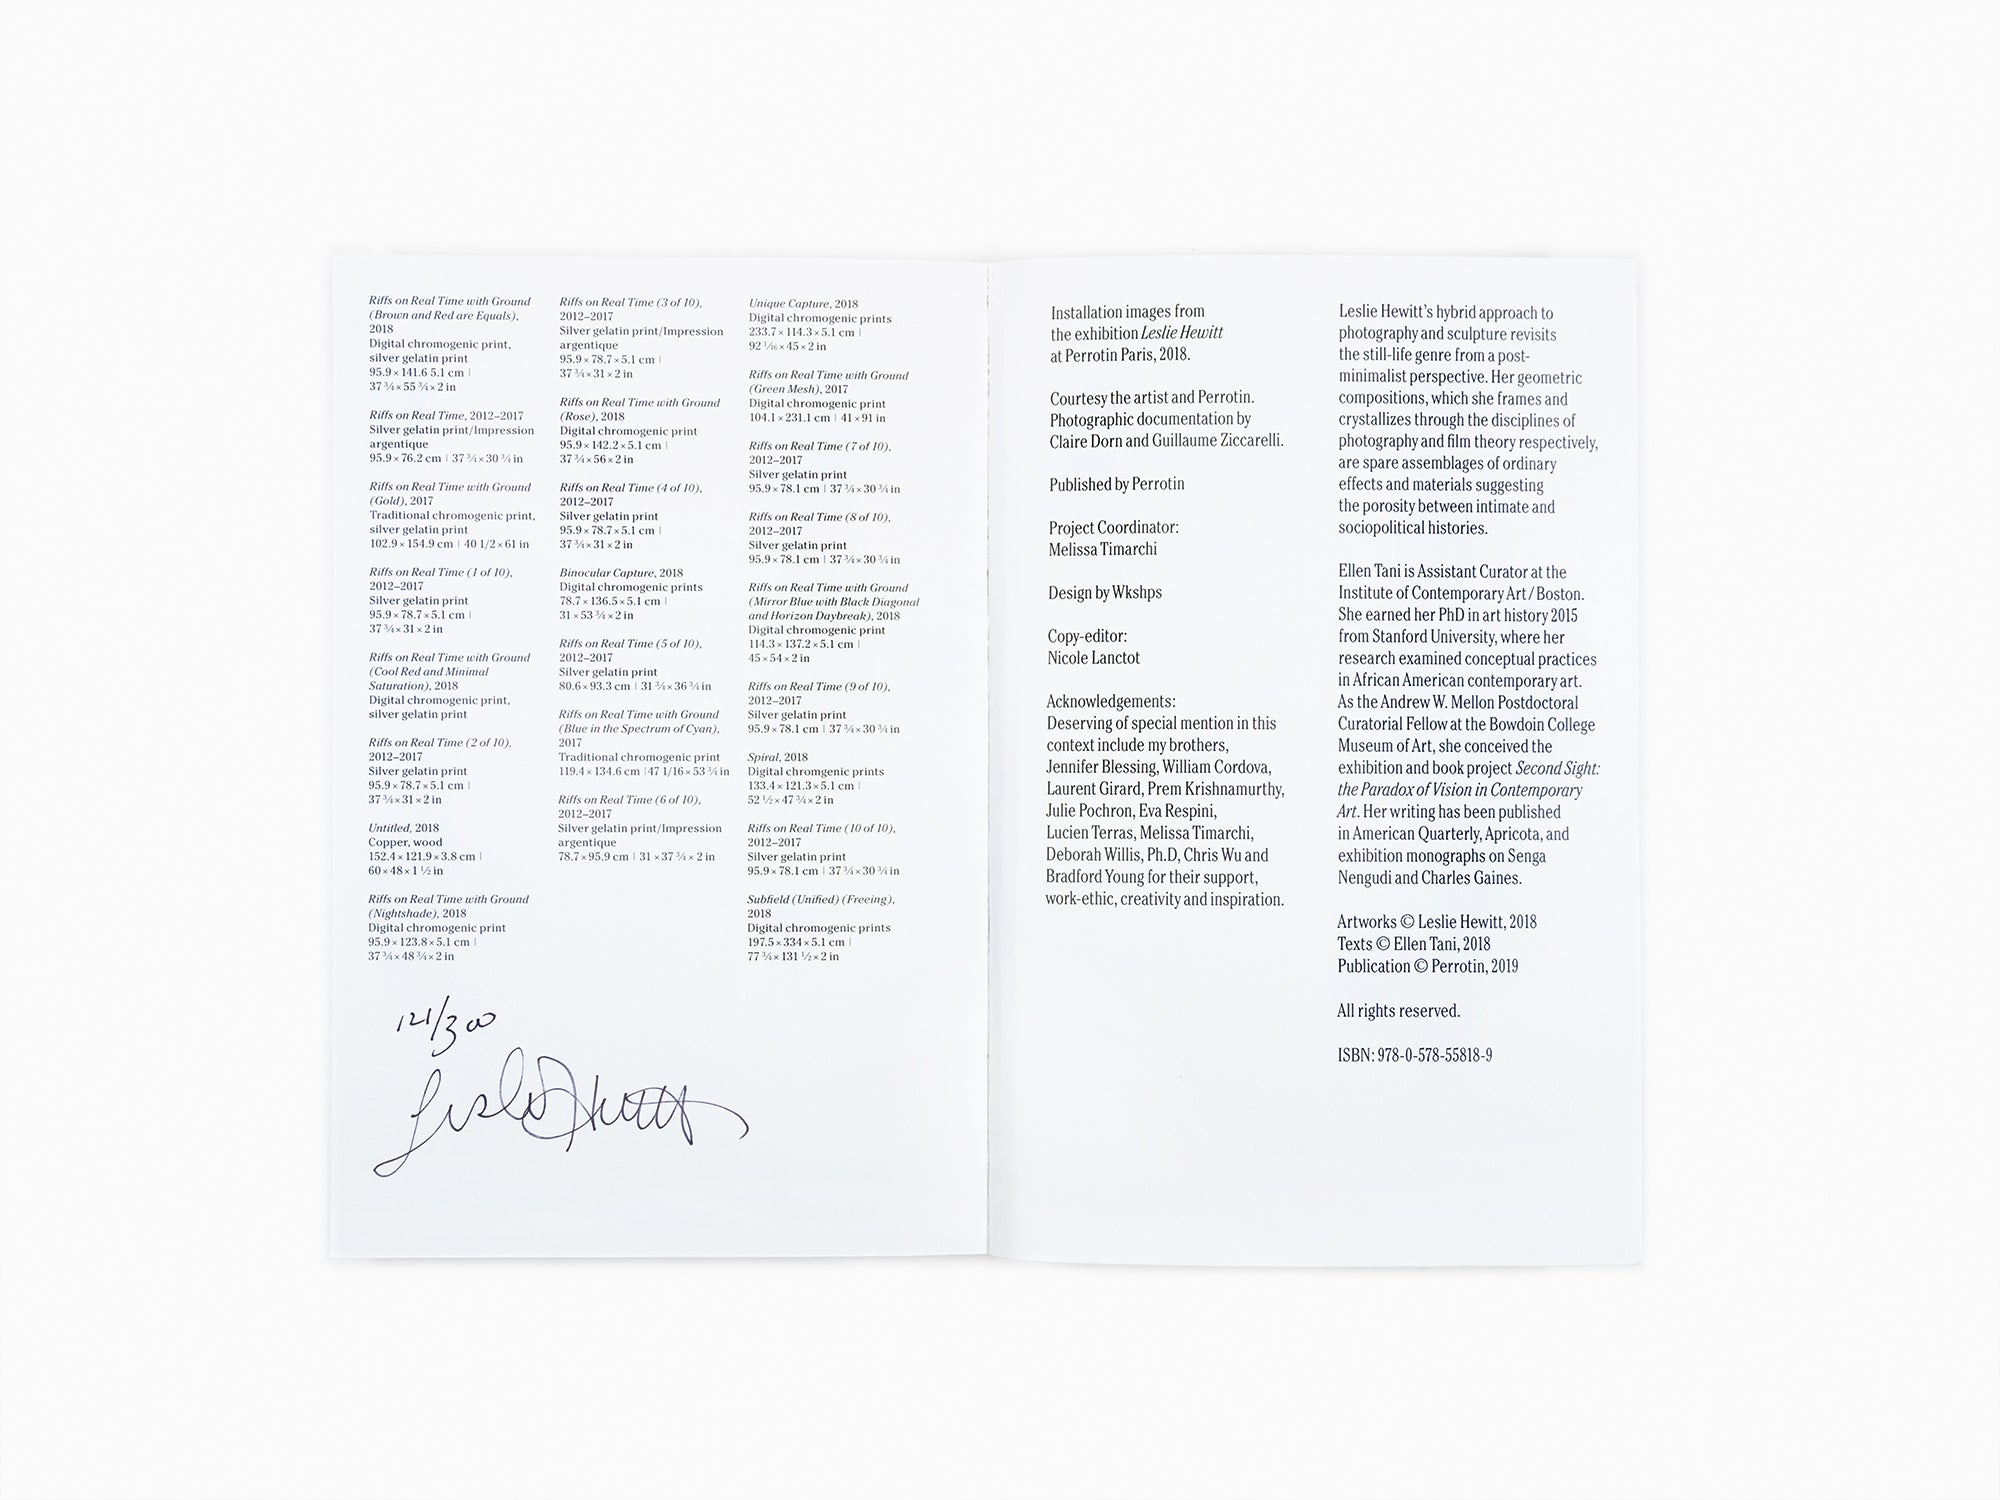 Riffs on Real Time with Ground
(Brown and Red are Equals),
2018
Digital chromogenic print,
silver gelatin print
95.9 × 141.6 5.1 cm |
37 ¾ × 55 ¾ × 2 in
Riffs on Real Time, 2012–2017
Silver gelatin print/Impression
argentique
95.9 × 76.2 cm | 37 ¾ × 30 ¾ in
Riffs on Real Time with Ground
(Gold), 2017
Traditional chromogenic print,
silver gelatin print
102.9 × 154.9 cm | 40 1/2 × 61 in
Riffs on Real Time (1 of 10),
2012–2017
Silver gelatin print
95.9 × 78.7 × 5.1 cm |
37 ¾ × 31 × 2 in
Riffs on Real Time with Ground
(Cool Red and Minimal
Saturation), 2018
Digital chromogenic print,
silver gelatin print
Riffs on Real Time (2 of 10),
2012–2017
Silver gelatin print
95.9 × 78.7 × 5.1 cm |
37 ¾ × 31 × 2 in
Untitled, 2018
Copper, wood
152.4 × 121.9 × 3.8 cm |
60 × 48 × 1 ½ in
Riffs on Real Time with Ground
(Nightshade), 2018
Digital chromogenic print
95.9 × 123.8 × 5.1 cm |
37 ¾ × 48 ¾ × 2 in
Riffs on Real Time (3 of 10),
2012–2017
Silver gelatin print/Impression
argentique
95.9 × 78.7 × 5.1 cm |
37 ¾ × 31 × 2 in
Riffs on Real Time with Ground
(Rose), 2018
Digital chromogenic print
95.9 × 142.2 × 5.1 cm |
37 ¾ × 56 × 2 in
Riffs on Real Time (4 of 10),
2012–2017
Silver gelatin print
95.9 × 78.7 × 5.1 cm |
37 ¾ × 31 × 2 in
Binocular Capture, 2018
Digital chromogenic prints
78.7 × 136.5 × 5.1 cm |
31 × 53 ¾ × 2 in
Riffs on Real Time (5 of 10),
2012–2017
Silver gelatin print
80.6 × 93.3 cm | 31 ¾ × 36 ¾ in
Riffs on Real Time with Ground
(Blue in the Spectrum of Cyan),
2017
Traditional chromogenic print
119.4 × 134.6 cm |47 1/16 × 53 ¾ in
Riffs on Real Time (6 of 10),
2012–2017
Silver gelatin print/Impression
argentique
78.7 × 95.9 cm | 31 × 37 ¾ × 2 in
Unique Capture, 2018
Digital chromogenic prints
233.7 × 114.3 × 5.1 cm |
92 1/16 × 45 × 2 in
Riffs on Real Time with Ground
(Green Mesh), 2017
Digital chromogenic print
104.1 × 231.1 cm | 41 × 91 in
Riffs on Real Time (7 of 10),
2012–2017
Silver gelatin print
95.9 × 78.1 cm | 37 ¾ × 30 ¾ in
Riffs on Real Time (8 of 10),
2012–2017
Silver gelatin print
95.9 × 78.1 cm | 37 ¾ × 30 ¾ in
Riffs on Real Time with Ground
(Mirror Blue with Black Diagonal
and Horizon Daybreak), 2018
Digital chromogenic print
114.3 × 137.2 × 5.1 cm |
45 × 54 × 2 in
Riffs on Real Time (9 of 10),
2012–2017
Silver gelatin print
95.9 × 78.1 cm | 37 ¾ × 30 ¾ in
Spiral, 2018
Digital chromgenic prints
133.4 × 121.3 × 5.1 cm |
52 ½ × 47 ¾ × 2 in
Riffs on Real Time (10 of 10),
2012–2017
Silver gelatin print
95.9 × 78.1 cm | 37 ¾ × 30 ¾ in
Subfield (Unified) (Freeing),
2018
Digital chromogenic prints
197.5 × 334 × 5.1 cm |
77 ¾ × 131 ½ × 2 in
121/300
Leslie Hewitt
Installation images from
the exhibition Leslie Hewitt
at Perrotin Paris, 2018.
Courtesy the artist and Perrotin.
Photographic documentation by
Claire Dorn and Guillaume Ziccarelli.
Published by Perrotin
Project Coordinator:
Melissa Timarchi
Design by Wkshps
Copy-editor:
Nicole Lanctot
Acknowledgements:
Deserving of special mention in this
context include my brothers,
Jennifer Blessing, William Cordova,
Laurent Girard, Prem Krishnamurthy,
Julie Pochron, Eva Respini,
Lucien Terras, Melissa Timarchi,
Deborah Willis, Ph.D, Chris Wu and
Bradford Young for their support,
work-ethic, creativity and inspiration.
Leslie Hewitt's hybrid approach to
photography and sculpture revisits
the still-life genre from a post-
minimalist perspective. Her geometric
compositions, which she frames and
crystallizes through the disciplines of
photography and film theory respectively,
are spare assemblages of ordinary
effects and materials suggesting
the porosity between intimate and
sociopolitical histories.
Ellen Tani is Assistant Curator at the
Institute of Contemporary Art / Boston.
She earned her PhD in art history 2015
from Stanford University, where her
research examined conceptual practices
in African American contemporary art.
As the Andrew W. Mellon Postdoctoral
Curatorial Fellow at the Bowdoin College
Museum of Art, she conceived the
exhibition and book project Second Sight:
the Paradox of Vision in Contemporary
Art. Her writing has been published
in American Quarterly, Apricota, and
exhibition monographs on Senga
Nengudi and Charles Gaines.
Artworks © Leslie Hewitt, 2018
Texts © Ellen Tani, 2018
Publication © Perrotin, 2019
All rights reserved.
ISBN: 978-0-578-55818-9